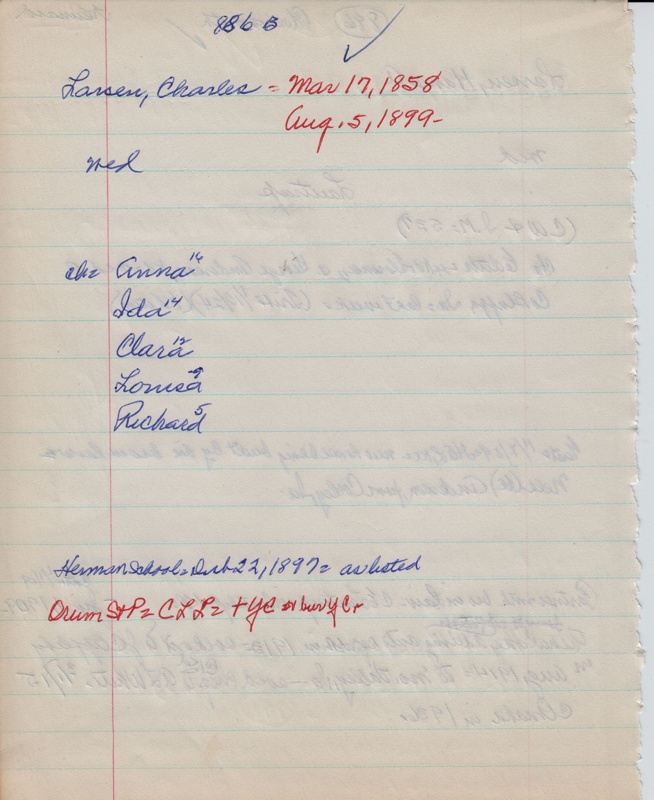 886 B
Larsen, Charles = Mar 17, 1858
Aug. 5, 1899-
wed
ch= Anna 16
Ida 14
Clara 12
Louisa 9
Richard 5
Herman School = 22, 1897 = as listed
Drum S+P = C L L = + YC or bur YCr